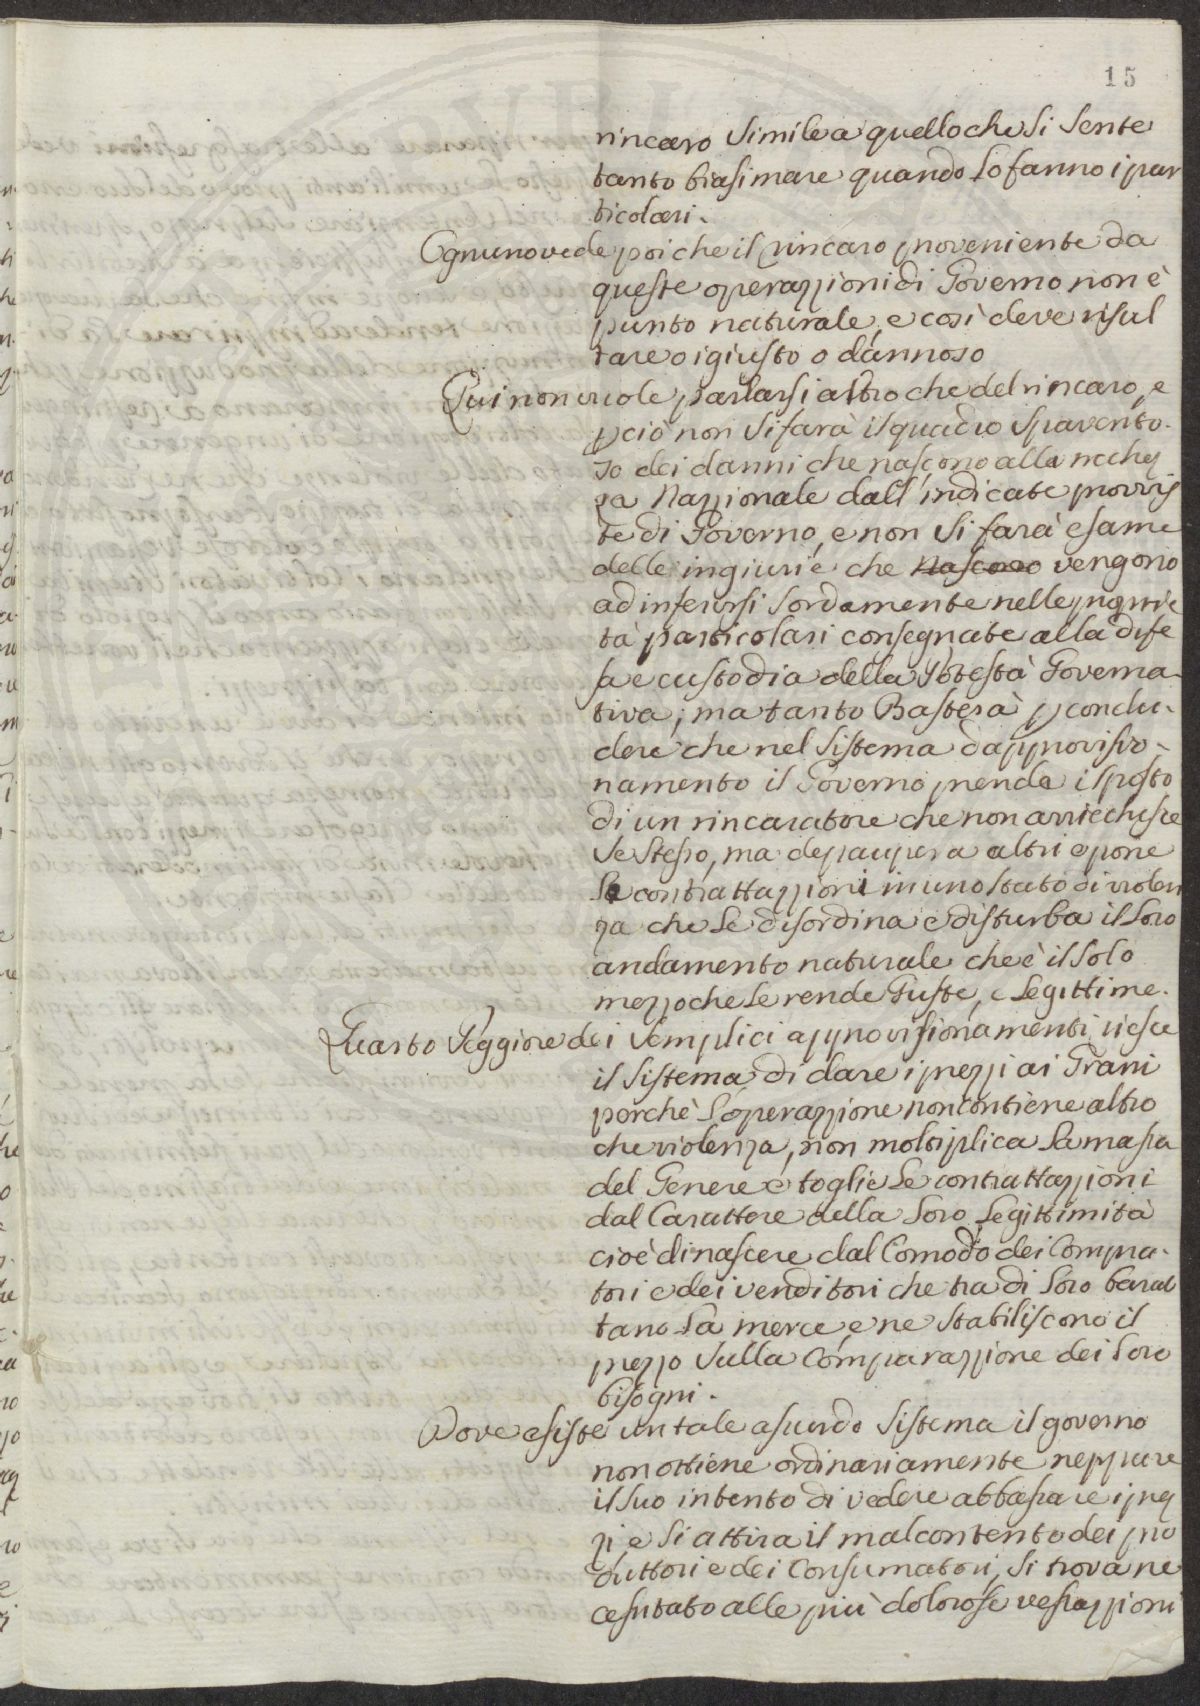 15
rincaro simile a quello che si sente
tanto biasimare quando lo fanno i par
ticolari.
Ognuno vede poi che il rincaro proveniente da
queste operazzioni di Governo non è
punto naturale, e così deve risul
tare o igiusto o dannoso
Qui non vuole parlarsi altro che del rincaro, e
pciò non si farà il quadro spavento-
so dei danni che nascono alla ricchez
za Nazzionale dall'indicate provvis
te di Governo, e non si farà esame
delle ingiurie che nascono vengono
ad inferirsi sordamente nelle proprie
tà particolari consegnate alla dife
sa e custodia della Potestà Governa-
tiva; ma tanto Basterà p conclu-
dere che nel sistema d'approvisio-
namento il Governo prende il posto
di un rincaratore che non arricchisce
se stesso, ma depaupera altri e pone
le contrattazzioni in uno stato di violen
za che le disordina e disturba il loro
andamento naturale che è il solo
mezzo che le rende Giuste, e Legittime.
Quarto Peggiore dei semplici approvisionamenti riesce
il sistema di dare i prezzi ai Grani
perchè l'operazzione non contiene altro
che violenza, non moltiplica la massa
del Genere e toglie le contrattazzioni
dal Carattere della loro Legittimità
cioè di nascere dal Comodo dei Compra-
tori e dei venditori che tra di loro barat
tano la merce, e ne stabiliscono il
prezzo sulla Comparazzione dei loro
bisogni.
Dove esiste un tale asurdo sistema il governo
non ottiene ordinariamente neppure
il suo intento di vedere abbassare i prez
zi e si attira il malcontento dei pro
duttori e dei Consumatori, si trova ne
cessitato alle più dolorose vessazzioni